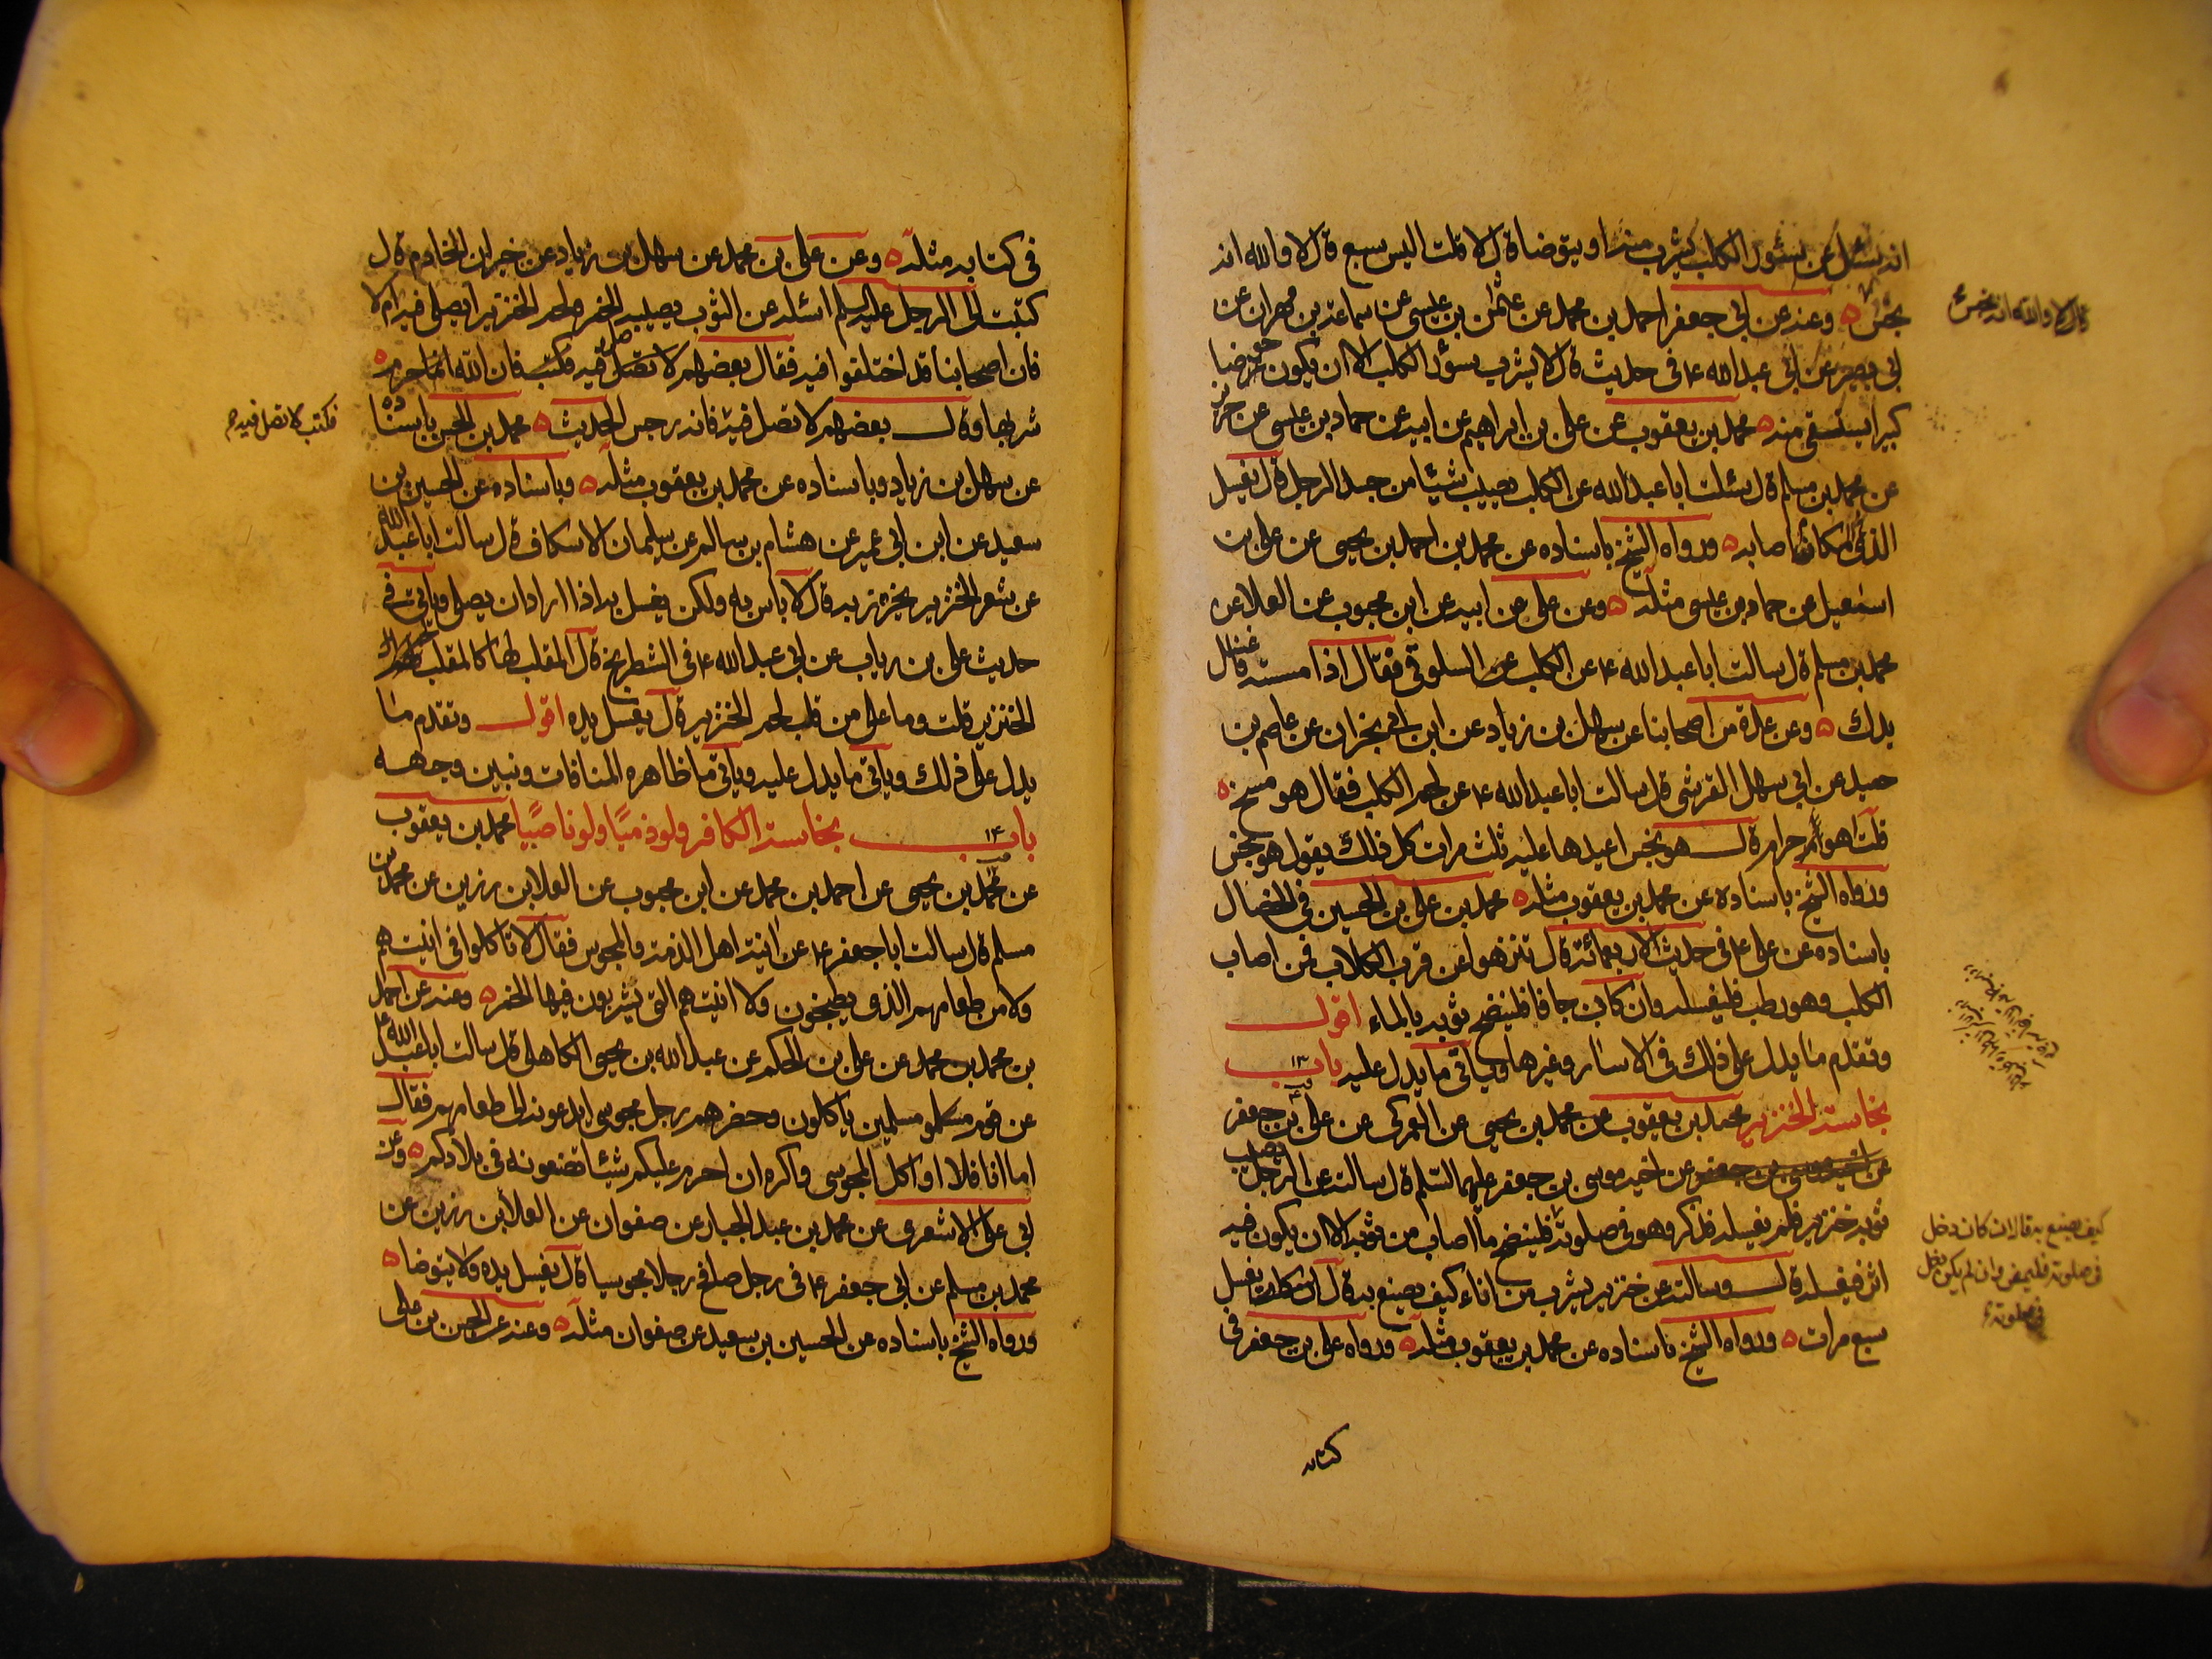 انه سئل عن سئور الكلب يشرب منه او يتوضا قال لا قلت اليس سبع قال لا والله انه
نجس ه وعنه عن ابى جعفر احمد بن محمد عن عثمن بن عيسى عن سماعة بن مهران عن
ابى بصير عن ابى عبدالله ع فى حديث قال لا يشرب سؤر الكلب الا ان يكون حوضا
كبيرا يستسقى منه ه محمد بن يعقوب عن على بن ابراهيم عن ابيه عن حماد بن عيسى عن حريز
عن محمد بن مسلم قال سئلت ابا عبدالله عن الكلب يصيب شيئا من جسد الرجل قال يغسل
المكان الذى اصابه ه ورواه الشيخ باسناده عن محمد بن احمد بن يحيى عن على بن
اسمعيل عن حماد بن عيسى مثله ه وعن على عن ابيه عن ابن محبوب عن العلا عن
محمد بن مسلم قال سالت ابا عبدالله ع عن الكلب السلوقى فقال اذا مسسته فاغسل
يدك ه وعن عدة من اصحابنا عن سهل بن زياد عن ابن ابى نجران عن عاصم بن
حميد عن ابى سهل القرشى قال سالت ابا عبدالله ع عن لحم الكلب فقال هو مسخ ه
قلت هو حرام قال هو نجس اعيدها عليه ثلث مرات كل ذلك يقول هو نجس
ورواه الشيخ باسناده عن محمد بن يعقوب مثله ه محمد بن على بن الحسين فى الخصال
باسناده عن على ع فى حديث الاربعمائة قال تنزهوا عن قرب الكلاب فمن اصاب
الكلب وهو رطب فليغسله وان كان جافا فلينضح ثوبه بالماء اقول
وتقدم ما يدل على ذلك فى الاسار وغيرها وياتى ما يدل عليه باب ١٣
نجاسة الخنزير محمد بن يعقوب عن محمد بن يحيى عن العمركى عن على بن جعفر
عن اخيه موسى بن جعفر عليهما السلم قال سالته عن الرجل يصيب
ثوبه خنزير فلم يغسله فذكر وهو فى صلوته فلينضح ما اصاب من ثوبه الا ان يكون فيه
اثر فيغسله قال وسالته عن خنزير يشرب من اناء كيف يصنع به قال يغسل
سبع مرات ه ورواه الشيخ باسناده عن محمد بن يعقوب مثله ه ورواه على بن جعفر فى
كتابه
قال لا والله انه نجس
كيف يصنع به قال ان كان دخل
فى صلوته فليمض وان لم يكن دخل
فى صلوته
فى كتابه مثله ه وعن على بن محمد عن سهل بن زياد عن خيران الخادم قال
كتبت الى الرجل عليه السلم اسئله عن الثوب يصيبه الخمر ولحم الخنزير ايصلى فيه ام لا
فان اصحابنا قد اختلفوا فيه فقال بعضهم صل فيه فان الله انما حرم
شربها وقال بعضهم لا تصل فيه فانه رجس الحديث ه محمد بن الحسن باسناده
عن سهل بن زياد وباسناده عن محمد بن يعقوب مثله ه وباسناده عن الحسين بن
سعيد عن ابن ابى عمير عن هشام بن سالم عن سليمان الاسكاف قال سالت ابا عبدالله
عن شعر الخنزير يخرز به قال لا باس به ولكن يغسل يده اذا اراد ان يصلى وياتى فى
حديث على بن رياب عن ابى عبدالله ع فى الشطرنج قال المقلب لها كالمقلب لحم
الخنزير قلت وما على من قلب لحم الخنزير قال يغسل يده اقول وتقدم ما
يدل على ذلك وياتى ما يدل عليه وياتى ما ظاهره المنافات ونبين وجهه
باب ١٤ نجاسة الكافر ولو ذميًا ولو ناصبيًا محمد بن يعقوب
عن محمد بن يحيى عن احمد بن محمد عن ابن محبوب عن العلا بن رزين عن محمد بن
مسلم قال سالت ابا جعفر ع عن انية اهل الذمة والمجوس فقال لا تاكلوا فى انيتهم
ولا من طعامهم الذى يطبخون ولا انيتهم التى يشربون فيها الخمر ه وعنه عن احمد
بن محمد عن على بن الحكم عن عبدالله بن يحيى الكاهلى قال سالت ابا عبدالله ع
عن قوم مسلمين ياكلون وحضرهم رجل مجوسى ايدعونه الى طعامهم فقال
اما انا فلا اواكل المجوسى واكره ان احرم عليكم شيئا تصنعونه فى بلادكم ه وعن
ابى على الاشعرى عن محمد بن عبد الجبار عن صفوان عن العلا بن رزين عن
محمد بن مسلم عن ابى جعفر ع فى رجل صافح رجلا مجوسيا قال يغسل يده ولا يتوضا ه
ورواه الشيخ باسناده عن الحسين بن سعيد عن صفوان مثله ه وعنه عن الحسن بن على
فكتب لا تصل فيه